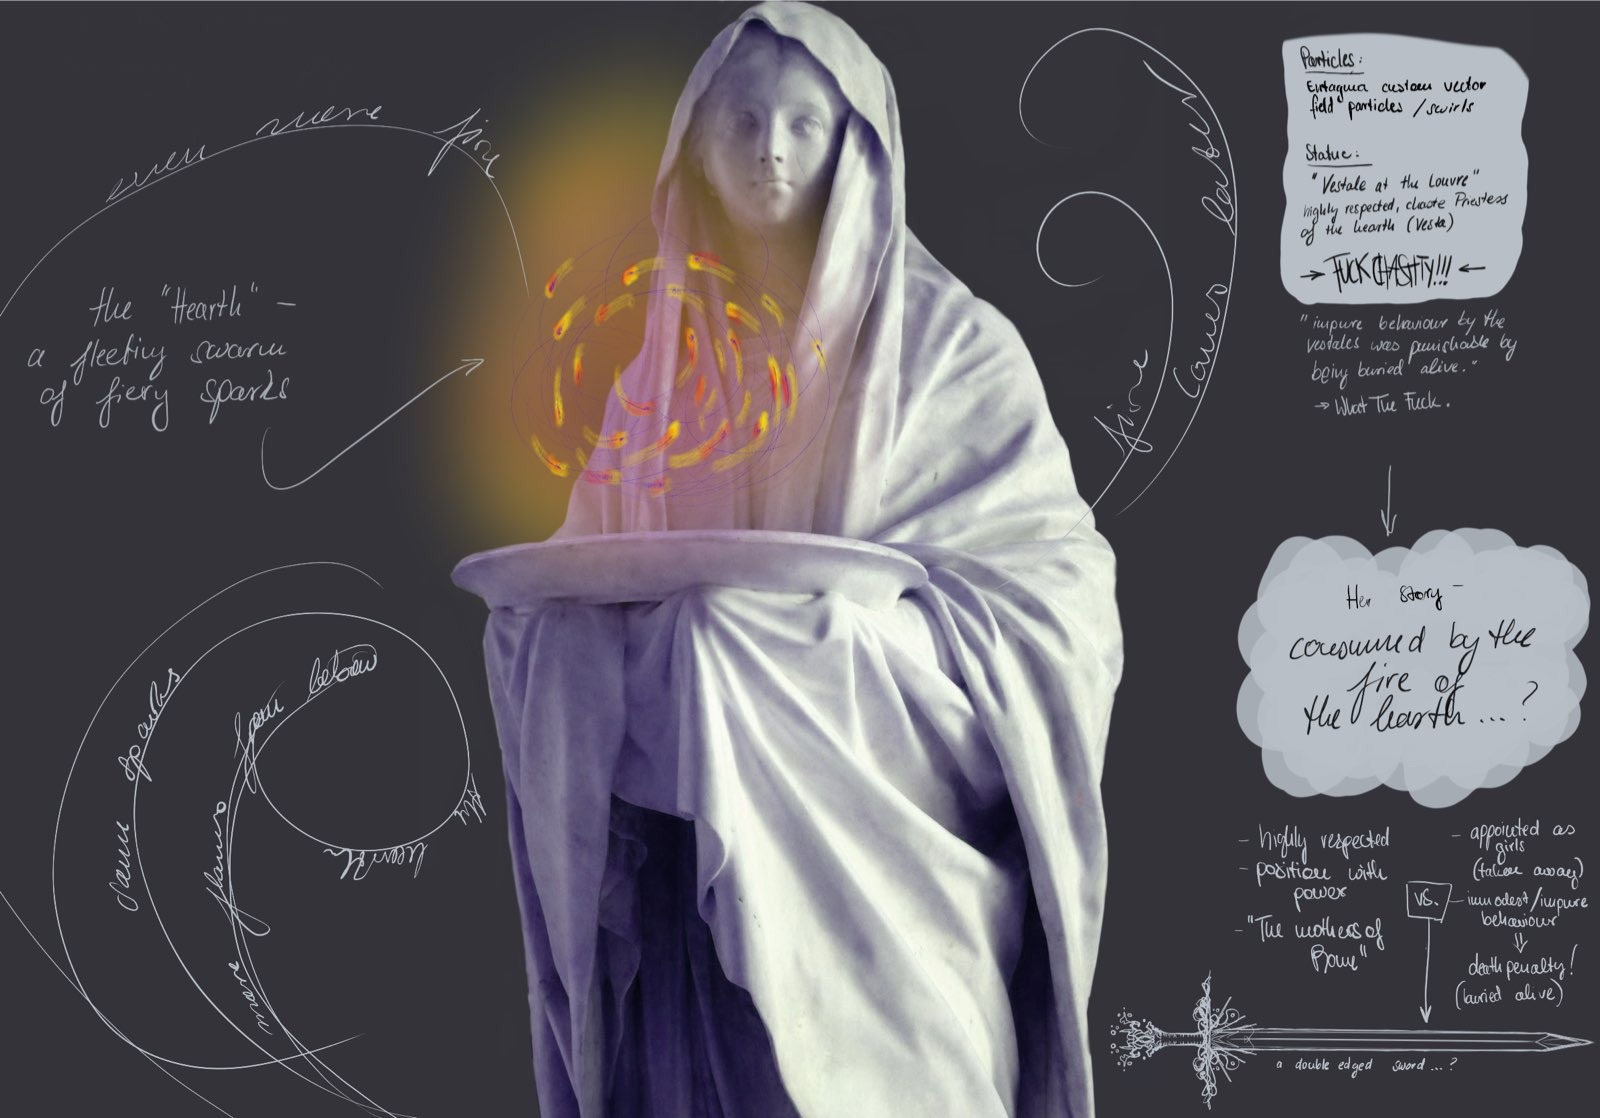 even more fire
the "Hearth" –
a fleeting swarm
of fiery sparks
some sparks
more flames from below
the hearth
fire
comes
Particles:
Entagma custom vector
field particles / swirls
Statue:
"Vestale at the Louvre"
highly respected, chaste Priestess
of the hearth (Vesta)
→ FUCK CHASTITY!!! ←
"impure behaviour by the
vestales was punishable by
being buried alive."
→ What The Fuck.
Her story –
consumed by the
fire of
the hearth ... ?
– highly respected
– position with
power
– "The mothers of
Rome"
vs.
– appointed as
girls
(taken away)
– immodest/impure
behaviour
⇓
death penalty!
(buried alive)
a double edged sword ... ?